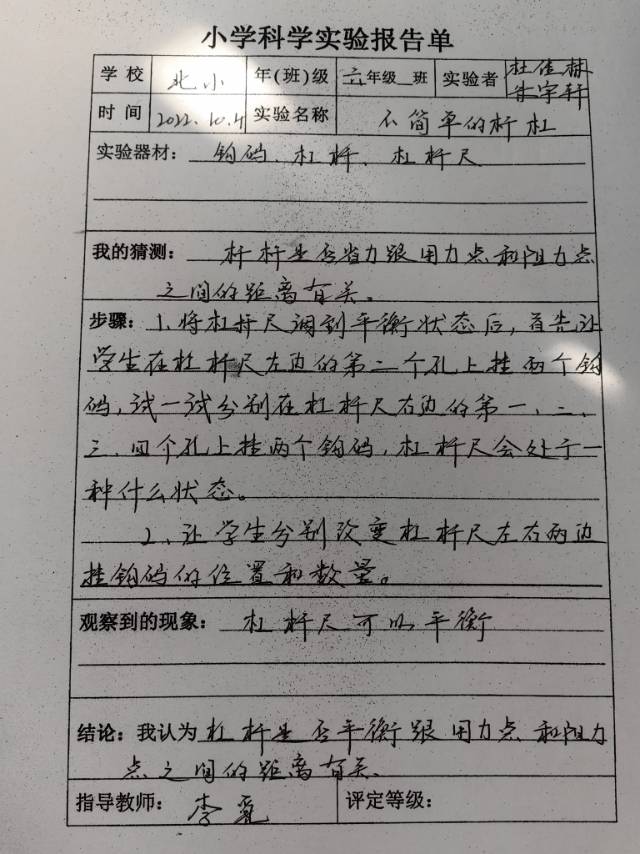 小学科学实验报告单
学校 北小 年(班)级 六年级 班 实验者 杜佳赫
朱宇轩
时间 2022.10.4 实验名称 不简单的杆杠
实验器材：钩码、杠杆、杠杆尺
我的猜测：杆杆是否省力跟用力点和阻力点
之间的距离有关。
步骤：1、将杠杆尺调到平衡状态后，首先让
学生在杠杆尺左边的第二个孔上挂两个钩
码，试一试分别在杠杆尺右边的第一、二、
三、四个孔上挂两个钩码，杠杆尺会处于一
种什么状态。
2、让学生分别改变杠杆尺左右两边
挂钩码的位置和数量。
观察到的现象：杠杆尺可以平衡
结论：我认为杠杆是否平衡跟用力点和阻力
点之间的距离有关。
指导教师：李 评定等级：